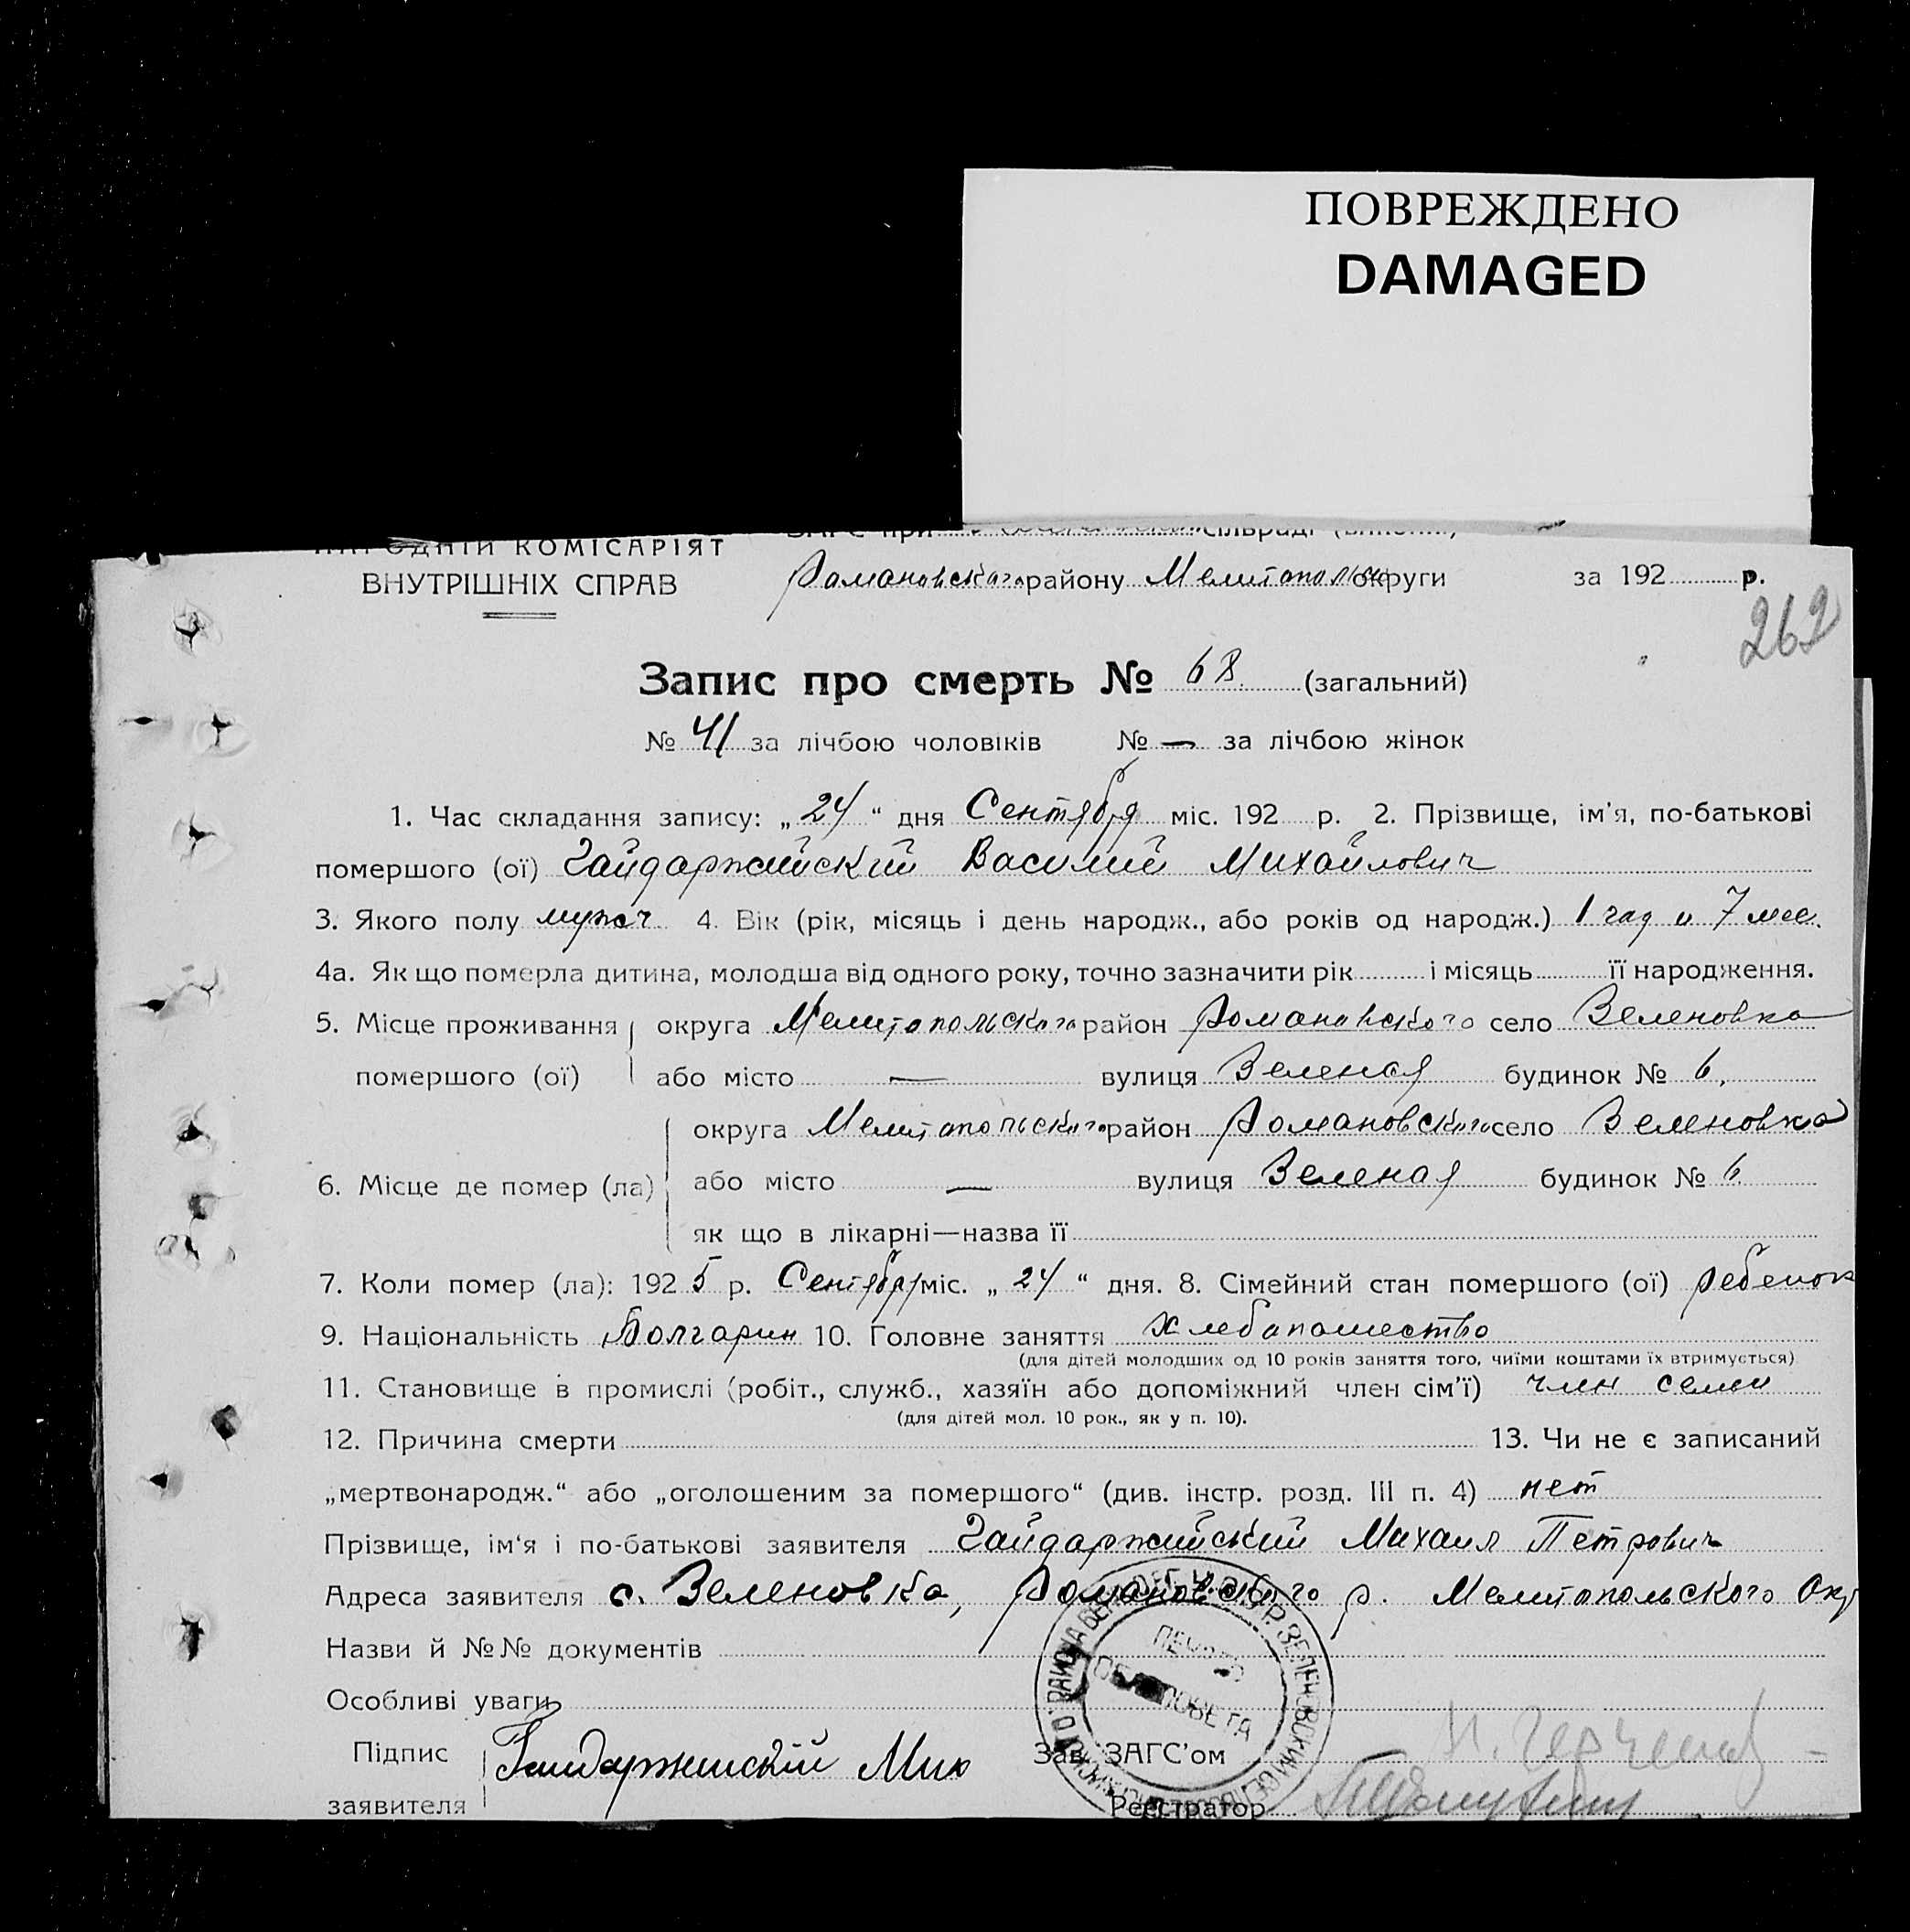 ПОВРЕЖДЕНО
DAMAGED
НАРОДНІЙ КОМІСАРІЯТ
ВНУТРІШНІХ СПРАВ
ЗАГС при сільраді
Романовского району Мелитополь округи за 192 р.
262
Запис про смерть № 68 (загальний)
№ 41 за лічбою чоловіків № — за лічбою жінок
1. Час складання запису: „24“ дня Сентября міс. 192 р. 2. Прізвище, ім'я, по-батькові
помершого (ої) Гайдаржийский Василий Михайлович
3. Якого полу мужч 4. Вік (рік, місяць і день народж., або років од народж.) 1 год и 7 мес.
4а. Як що померла дитина, молодша від одного року, точно зазначити рік і місяць її народження.
5. Місце проживання округа Мелитопольского район Романовского село Зеленовка
помершого (ої) або місто — вулиця Зеленая будинок № 6.
округа Мелитопольского район Романовского село Зеленовка
6. Місце де помер (ла) або місто — вулиця Зеленая будинок № 6.
як що в лікарні—назва її
7. Коли помер (ла): 1925 р. Сентября міс. „24“ дня. 8. Сімейний стан помершого (ої) ребенок
9. Національність Болгарин 10. Головне заняття Хлебопашество
(для дітей молодших од 10 років заняття того, чиїми коштами їх втримується)
11. Становище в промислі (робіт., служб., хазяїн або допоміжний член сім'ї) член семьи
(для дітей мол. 10 рок., як у п. 10).
12. Причина смерти 13. Чи не є записаний
„мертвонародж.“ або „оголошеним за помершого“ (див. інстр. розд. III п. 4) нет
Прізвище, ім'я і по-батькові заявителя Гайдаржийский Михаил Петрович
Адреса заявителя с. Зеленовка, Романовского р. Мелитопольского Окр
Назви й №№ документів
Особливі уваги
Підпис Гайдаржийскій Мих Зав. ЗАГС'ом
заявителя Реєстратор
ПЕЧАТЬ
СЕЛЬСОВЕТА